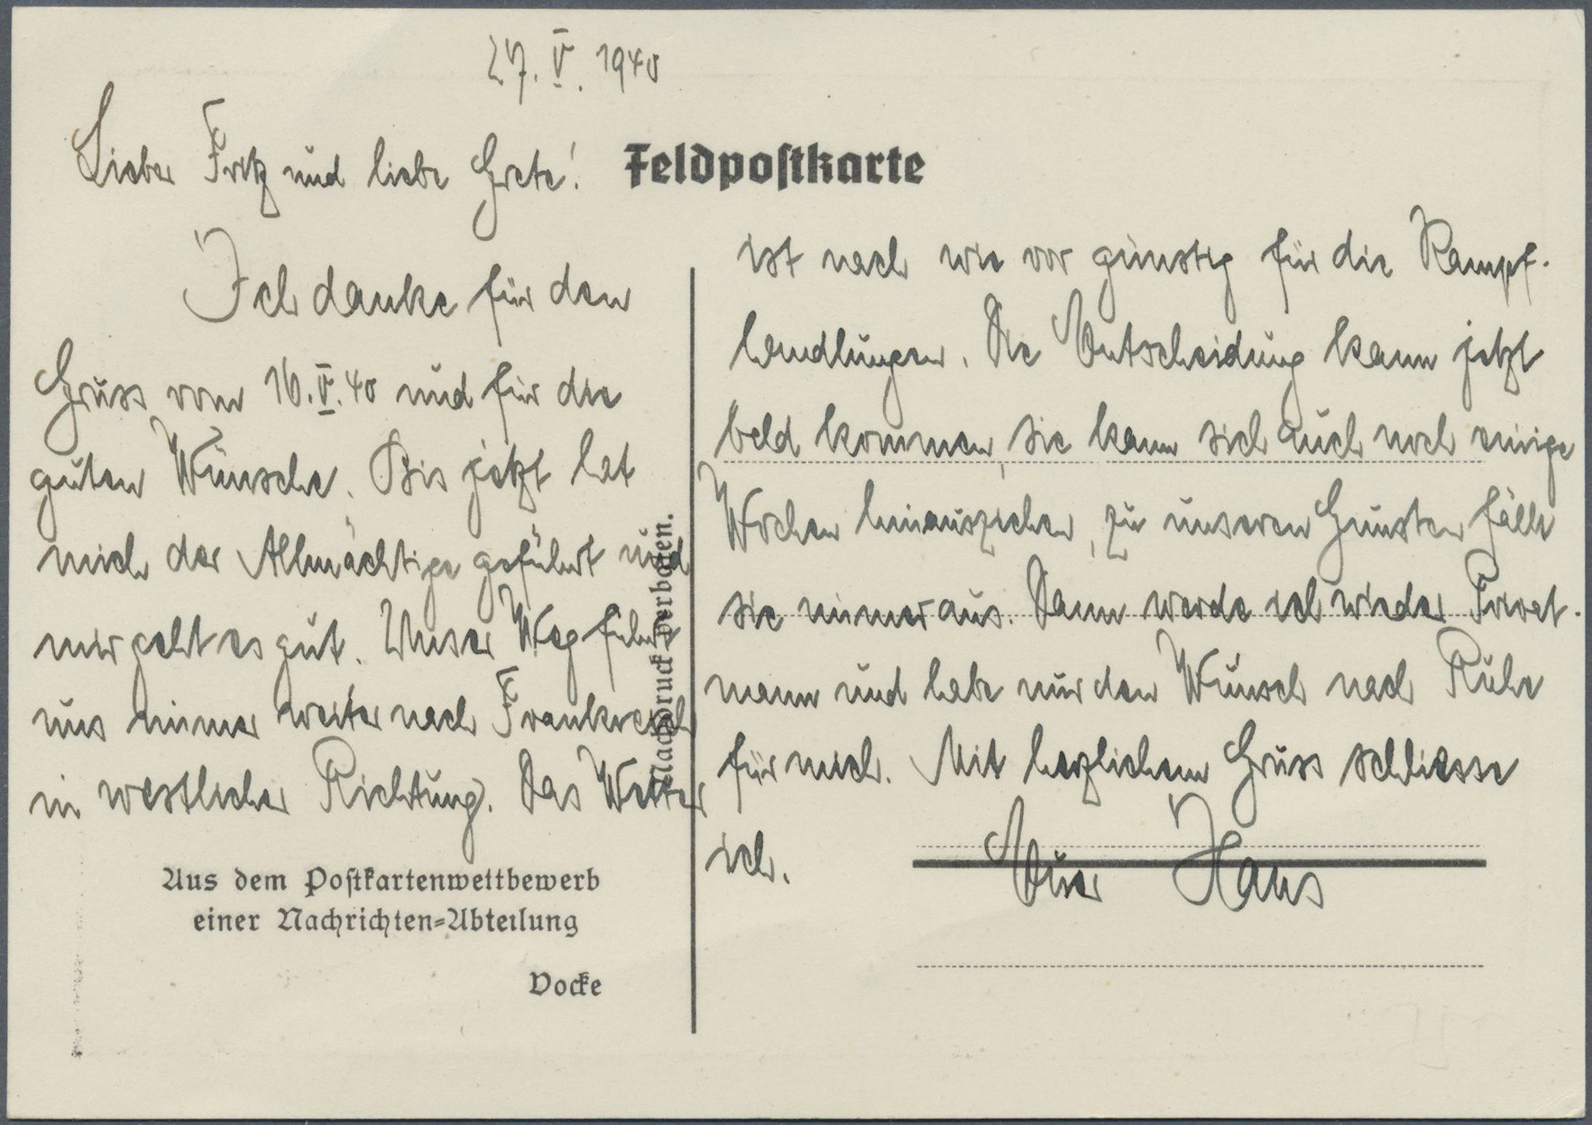 27. V. 1940
Lieber Fritz und liebe Grete!
Feldpostkarte
Ich danke für den
Gruss vom 16.V.40 und für die
guten Wünsche. Bis jetzt hat
mich der Allmächtige geführt und
mir geht es gut. Unser Weg führt
uns immer weiter nach Frankreich
in westlicher Richtung. Das Wetter
ist nach wie vor günstig für die Kampf-
handlungen. Die Entscheidung kann jetzt
bald kommen, sie kann sich auch noch einige
Wochen hinausziehen, zu unseren Gunsten fällt
sie immer aus. Dann werde ich wieder Privat-
mann und habe nur den Wunsch nach Ruhe
für mich. Mit herzlichem Gruss schliesse
ich. Euer Hans
Nachdruck verboten.
Aus dem Postkartenwettbewerb
einer Nachrichten-Abteilung
Vocke